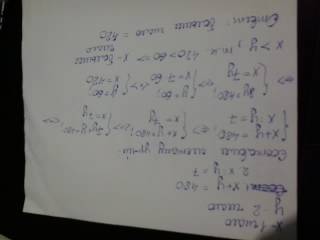 x-1 число
y-2 число
1. x+y=480
2. x:y=7
Составим систему ур-ий.
{x+y=480; x:y=7 <=> {x+y=480; x=7y <=> {7y+y=480; x=7y <=>
<=> {8y=480; x=7y <=> {y=60; x=7·60 <=> {y=60; x=420
x>y, т.к. 420>60 => x-большее число
Ответ: большее число = 420